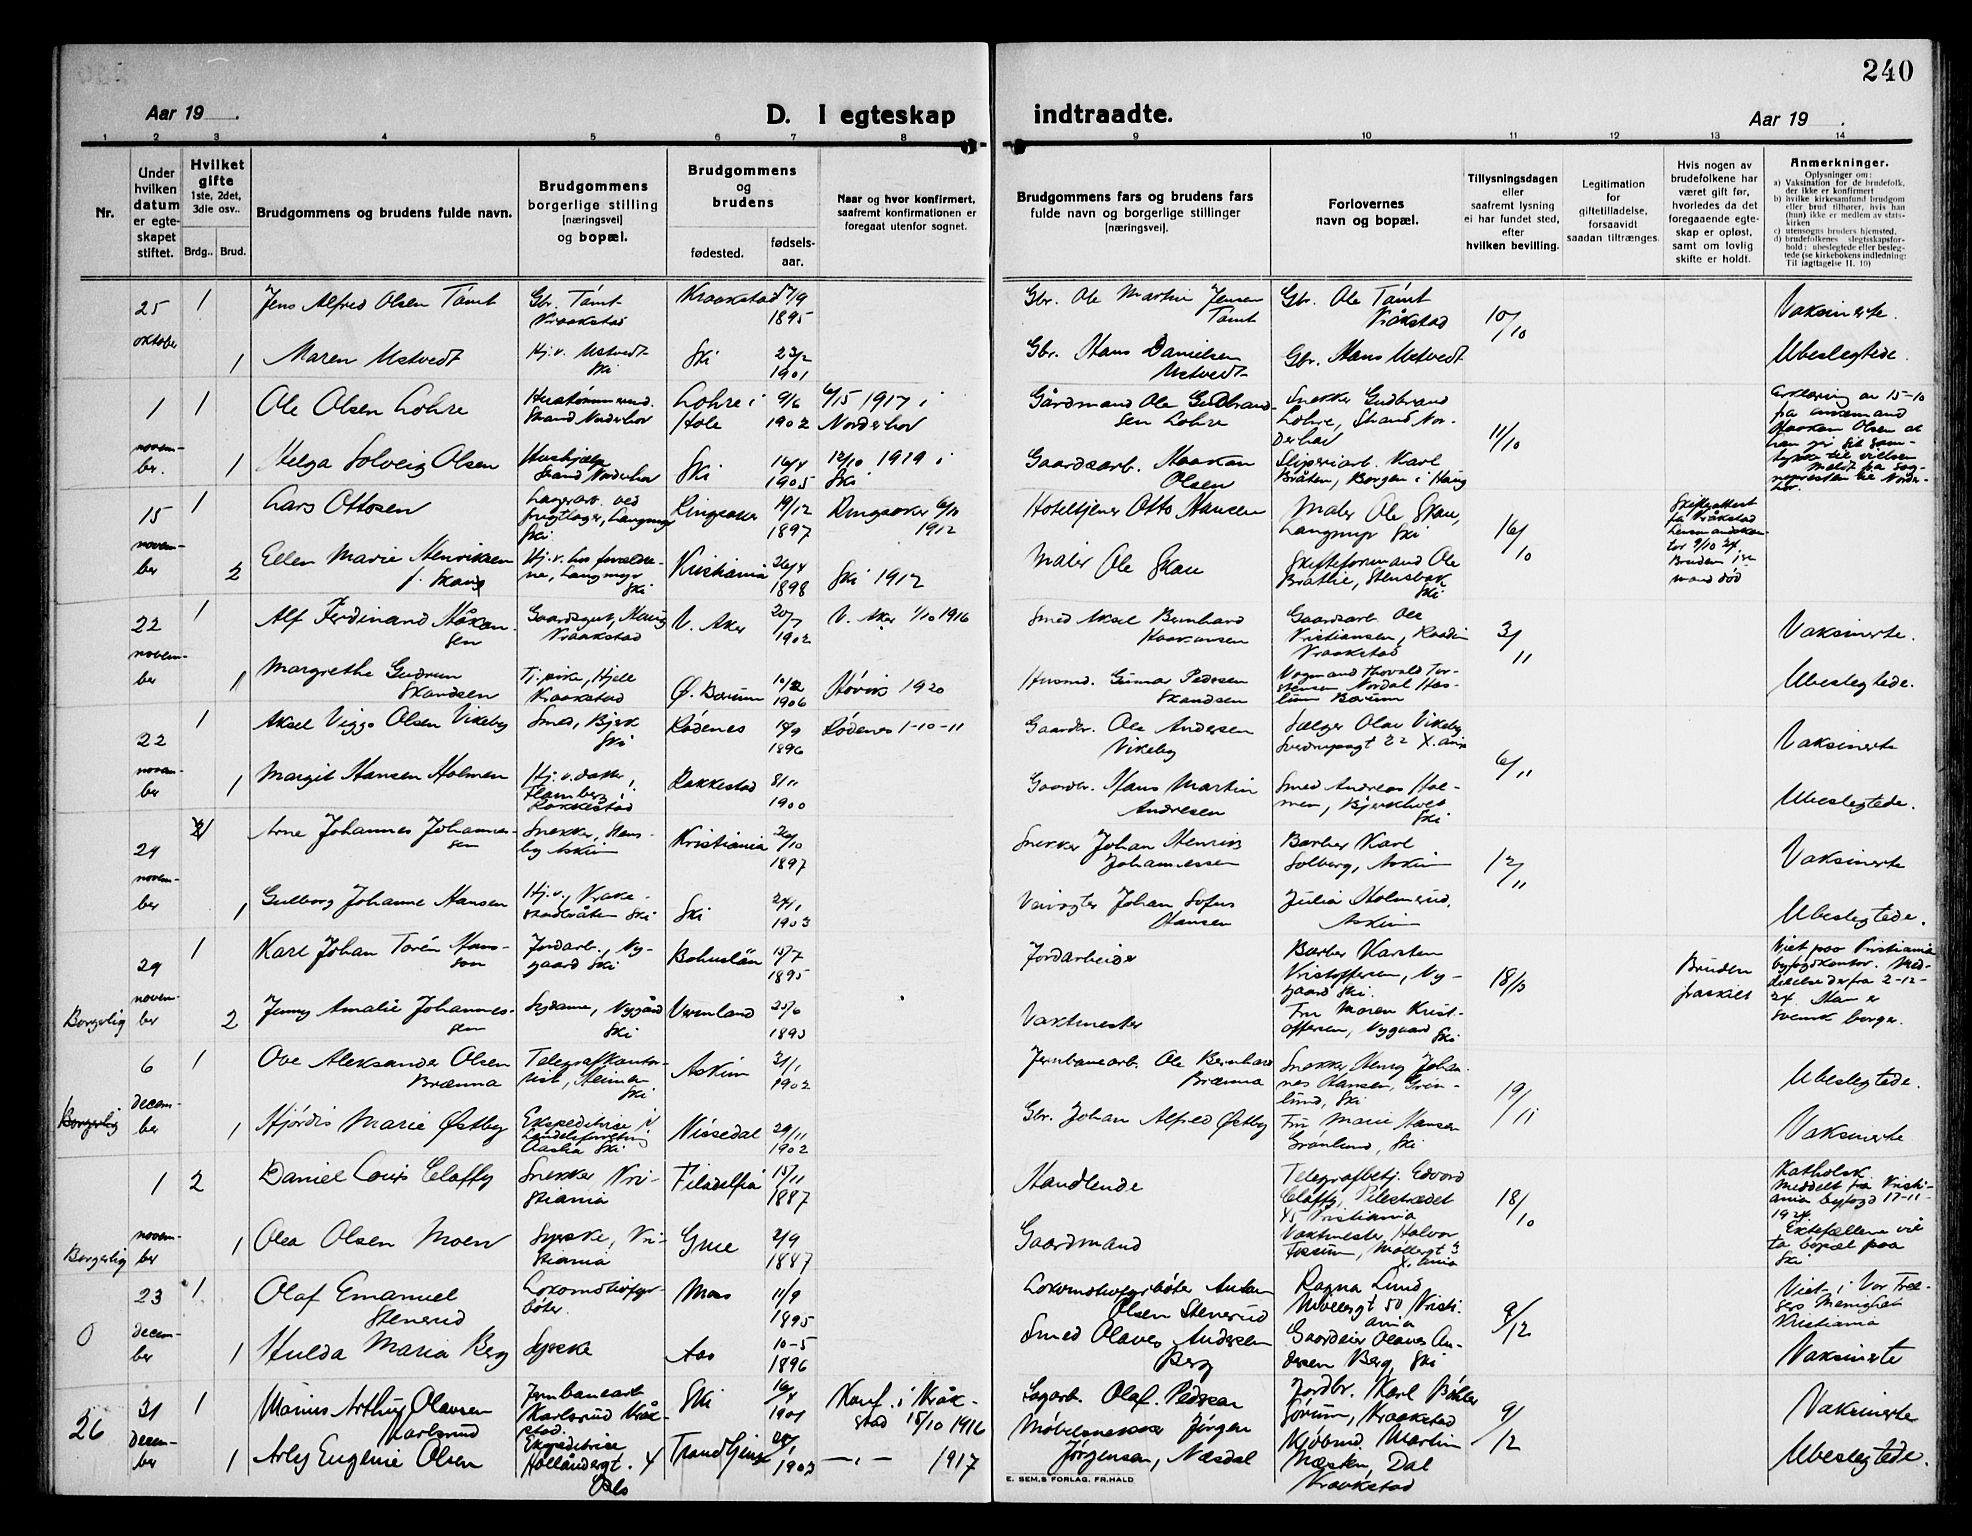 240
Aar 19 . D. I egteskap indtraadte. Aar 19 .
1 2 3 4 5 6 7 8 9 10 11 12 13 14
Nr.
Under hvilken datum er egteskapet stiftet.
Hvilket gifte 1ste, 2det, 3die osv..
Brdg.. Brud.
Brudgommens og brudens fulde navn.
Brudgommens borgerlige stilling (næringsvei) og bopæl.
Brudgommens og brudens
fødested. fødselsaar.
Naar og hvor konfirmert, saafremt konfirmationen er foregaat utenfor sognet.
Brudgommens fars og brudens fars fulde navn og borgerlige stillinger (næringsvei).
Forlovernes navn og bopæl.
Tillysningsdagen eller saafremt lysning ei har fundet sted, efter hvilken bevilling.
Legitimation for giftetilladelse, forsaavidt saadan tiltrænges.
Hvis nogen av brudefolkene har været gift før, hvorledes da det foregaaende egteskap er opløst, samt om lovlig skifte er holdt.
Anmerkninger.
Oplysninger om:
a) Vaksination for de brudefolk, der ikke er konfirmert
b) hvilke kirkesamfund brudgom eller brud tilhører, hvis han (hun) ikke er medlem av statskirken
c) utensogns bruders hjemsted.
d) brudefolkenes slegtsskapsforhold: ubeslegtede eller beslegtede (se kirkebokens indledning: Til iagttagelse II. 10)
25 oktober 1 Jens Alfred Olsen Tømt Gbr. Tømt Kraakstad Kraakstad 1895 Gbr. Ole Martin Jensen Tømt Gbr. Ole Tømt Kråkstad 10/10 Vaksinerte.
1 Maren Ustvedt Hj.v. Ustvedt Ski Ski 23/2 1901 Gbr. Hans Danielsen Ustvedt Gbr. Hans Ustvedt Ubeslegtede.
1 november. 1 Ole Olsen Lohre Strand Norderhov Lohre i Hole 9/6 1902 1917 i Norderhov Gårdmand Ole Gudbrandsen Lohre Snekker Gudbrand Lohre, Strand Norderhov 11/10 Erklæring av 15-10 fra Haakon Olsen at han gir sit samtykke til vielsen
1 Helga Solveig Olsen Hushjelp Strand Norderhov Ski 16/4 1905 12/10 1919 i Ski Gaardsarb. Haakon Olsen Sliperiarb. Karl Bråten, Borgen i Haug
15 november 1 Lars Ottosen Lagerarb. ved frugtlager, Langmyr Ski Ringsaker 19/12 1897 Ringsaker 1912 Hoteltjener Otto Hansen Maler Ole Skau, Langmyr Ski 16/10 Skifteattest fra Kråkstad 9/10 24 Brudens mand død
2 Ellen Marie Henriksen f. Skau Hj.v. hos forældrene, Langmyr Ski Kristiania 26/4 1898 Ski 1912 Maler Ole Skau Skifteformand Ole Brathe, Stensbok Ski
22 november 1 Alf Ferdinand Håkansen Gaardsgut, Haug Kraakstad V. Aker 20/7 1902 V. Aker 1/10 1916 Smed Aksel Bernhard Haakansen Gaardsarb. Ole Kristiansen, Kraakstad 3/11 Vaksinerte.
1 Margrethe Gudrun Skandsen Tj.pike, Hjell Kraakstad Ø. Bærum 1906 Høvik 1920 Husmd. Gunnar Pedersen Skandsen Vognmand Thorvald Torstensen Nordal Haslum Bærum Ubeslegtede.
22 november 1 Aksel Viggo Olsen Vikeby Smed, Bjerk Ski Rødenes 1896 Rødenes 1-10-11 Gaardbr. Ole Andersen Vikeby Sælger Olav Vikeby Sverdrupsgt 22 X.ania 6/11 Vaksinerte
1 Margit Hansen Holmen Hj.v. datter, Flamberg i Rakkestad Rakkestad 8/11 1900 Gaardbr. Hans Martin Andresen Smed Andreas Holmen, Ski Ubeslegtede.
29 november 1 Arne Johannes Johannessen Snekker, Askim Kristiania 20/10 1897 Snekker Johan Henrik Johannessen Barber Karl Solberg, Askim 12/11 Vaksinerte
1 Gulborg Johanne Hansen Hj.v., Ski Ski 24/1 1903 Veivogter Johan Sofus Hansen Julia Holmerud. Askim Ubeslegtede.
Borgerlig 29 november 1 Karl Johan Torén Hansson Jordarb., Nygaard Ski Bohuslän 15/7 1895 Jordarbeider Barber Karsten Kristoffersen, Nygaard Ski. 18/10 Bruden fraskilt Viet paa Kristiania byfogdkontor. Meddelelse derfra 2-12-24. Man er svensk borger.
2 Jenny Amalie Johannessen Sydame, Nygård Ski Vermland 25/6 1893 Vaktmester Fru Maren Kristoffersen, Nygaard Ski
Borgerlig 6 december 1 Ove Aleksander Olsen Brænna Telegrafkontorist, Heimen Ski Askim 1902 Jernbanearb. Ole Bernhard Brænna Snekker Henry Johannes Hansen, Grønlund, Ski 19/11 Ubeslegtede.
1 Hjørdis Marie Østby Ekspeditrise i Landsforretning Ski Nissedal 29/11 1902 Gbr. Johan Alfred Østby Fru Marie Hansen Grønlund, Ski Vaksinerte
Borgerlig 1 november 2 Daniel Louis Claffy Snekker Kristiania Filadelfia 15/11 1887 Handlende Telegrafbetj. Edvard Claffy, Pilestrædet 45 Kristiania 18/10 Katholsk Meddelt fra Kristiania byfogd 17-11-1924. Ektefællene vil ta bopæl paa Ski
1 Olea Olsen Moen Syerske, Kristiania Grue 2/9 1887 Gaardmand Vaktmester, Halvor Fossum, X.ania
0 23 december 1 Olaf Emanuel Stenerud Lokomotivfyrbøter. Moss 11/9 1895 Lokomotivfyrbøter Anton Olsen Stenerud Ragna Lund Kristiania 9/12 Viet i Vor Frelsers Menighet Kristiania
1 Hulda Maria Berg Syerske Aas 10-5 1896 Smed Olaves Andersen Berg Gaardeier Olaves Andersen Berg, Ski Vaksinerte
26 31 december 1 Marius Arthur Olavsen Karlsrud Jernbanearb Karlsrud Kråkstad. Ski 16/4 1901 Konf. i Kråkstad 15/10 1916 Sagarb. Olaf Pedersen Jordbr. Karl Bøhler Sørum, Kraakstad 9/12 Vaksinerte
1 Arley Eugenie Olsen Ekspeditrise Hollændergt. 4 Oslo Trondhjem 1903 — „ — 1917 Møbelsnekker Jørgen Jørgensen, Næsdal Kjøbmd. Martin Næsken, Dal Kraakstad Ubeslegtede.
E. SEM.S FORLAG, FR.HALD